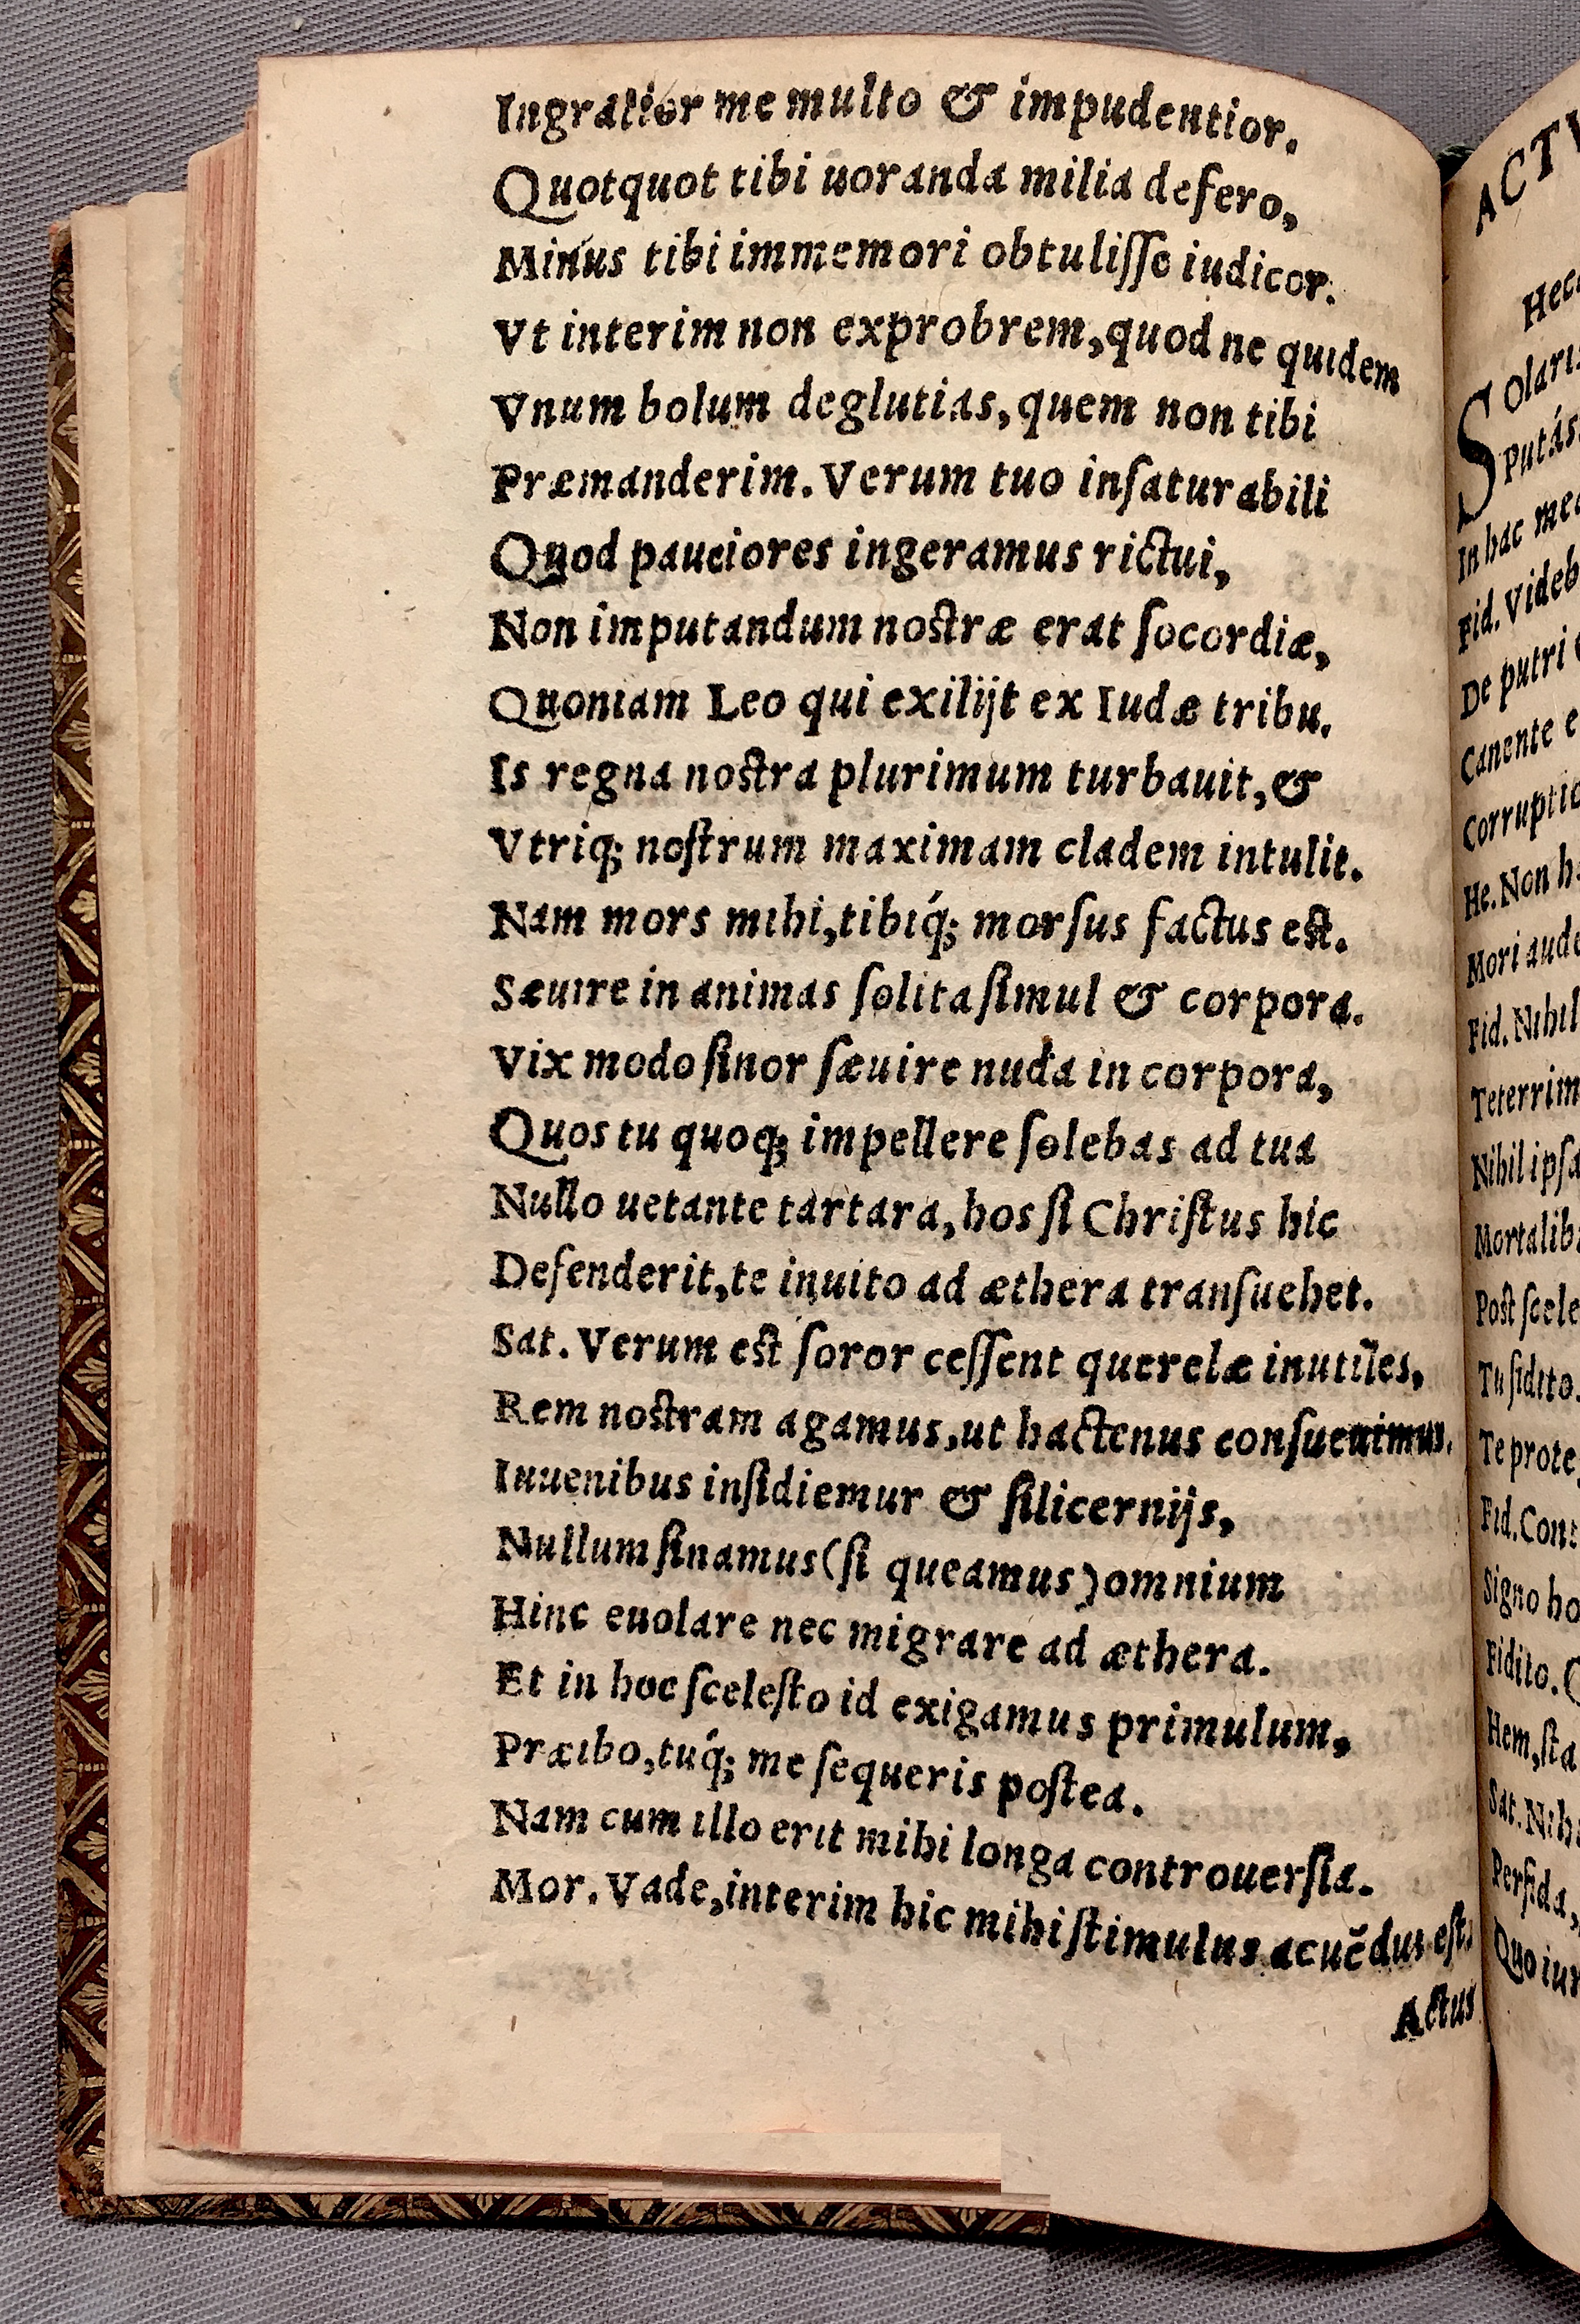 Ingratior me multo & impudentior.
Quotquot tibi uoranda milia defero,
Minus tibi immemori obtuliſſe iudicor.
Vt interim non exprobrem, quod ne quidem
Vnum bolum deglutias, quem non tibi
Præmanderim. Verum tuo inſaturabili
Quod pauciores ingeramus rictui,
Non imputandum noſtræ erat ſocordiæ,
Quoniam Leo qui exilijt ex Iudæ tribu.
Is regna noſtra plurimum turbauit, &
Vtriq; noſtrum maximam cladem intulit.
Nam mors mihi, tibiq́; morſus factus eſt.
Sæuire in animas ſolita ſimul & corpora.
Vix modo ſinor ſæuire nuda in corpora,
Quos tu quoq; impellere ſolebas ad tua
Nullo uetante tartara, hos ſi Chriſtus hic
Defenderit, te inuito ad æthera tranſuehet.
Sat. Verum eſt ſoror ceſſent querelæ inutiles,
Rem noſtram agamus, ut hactenus conſueuimus.
Iuuenibus inſidiemur & ſilicernijs,
Nullum ſinamus (ſi queamus) omnium
Hinc euolare nec migrare ad æthera.
Et in hoc ſceleſto id exigamus primulum,
Præibo, tuq́; me ſequeris poſtea.
Nam cum illo erit mihi longa controuerſia.
Mor. Vade, interim hic mihi ſtimulus acuēdus eſt.
Actus
In hac
Fid.
De putri
Canente
He. Non
Mori
Fid. Nihil
Nihil
Poſt
Tu fidito.
Te
Fid.
Signo
Fidito.
Hem,
Sat.
Perfida,
Quo